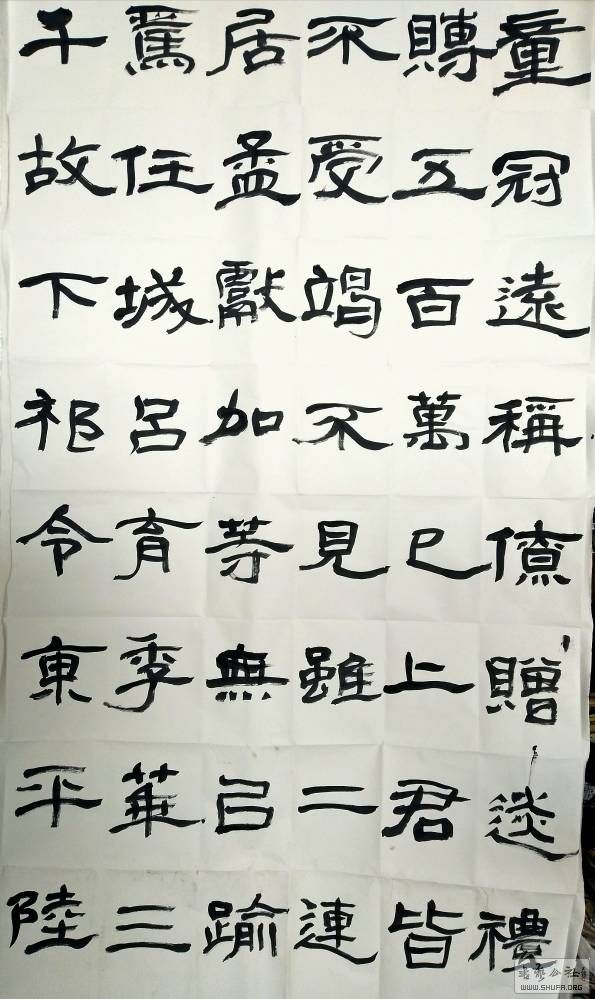 童冠遠稱僚贈送禮
賻五百萬已上君皆
不受竭不見雖二連
居孟獻加等無已踰
任城呂育季華三
千故下祁令東平陸
書法公社
WWW.SHUFA.ORG